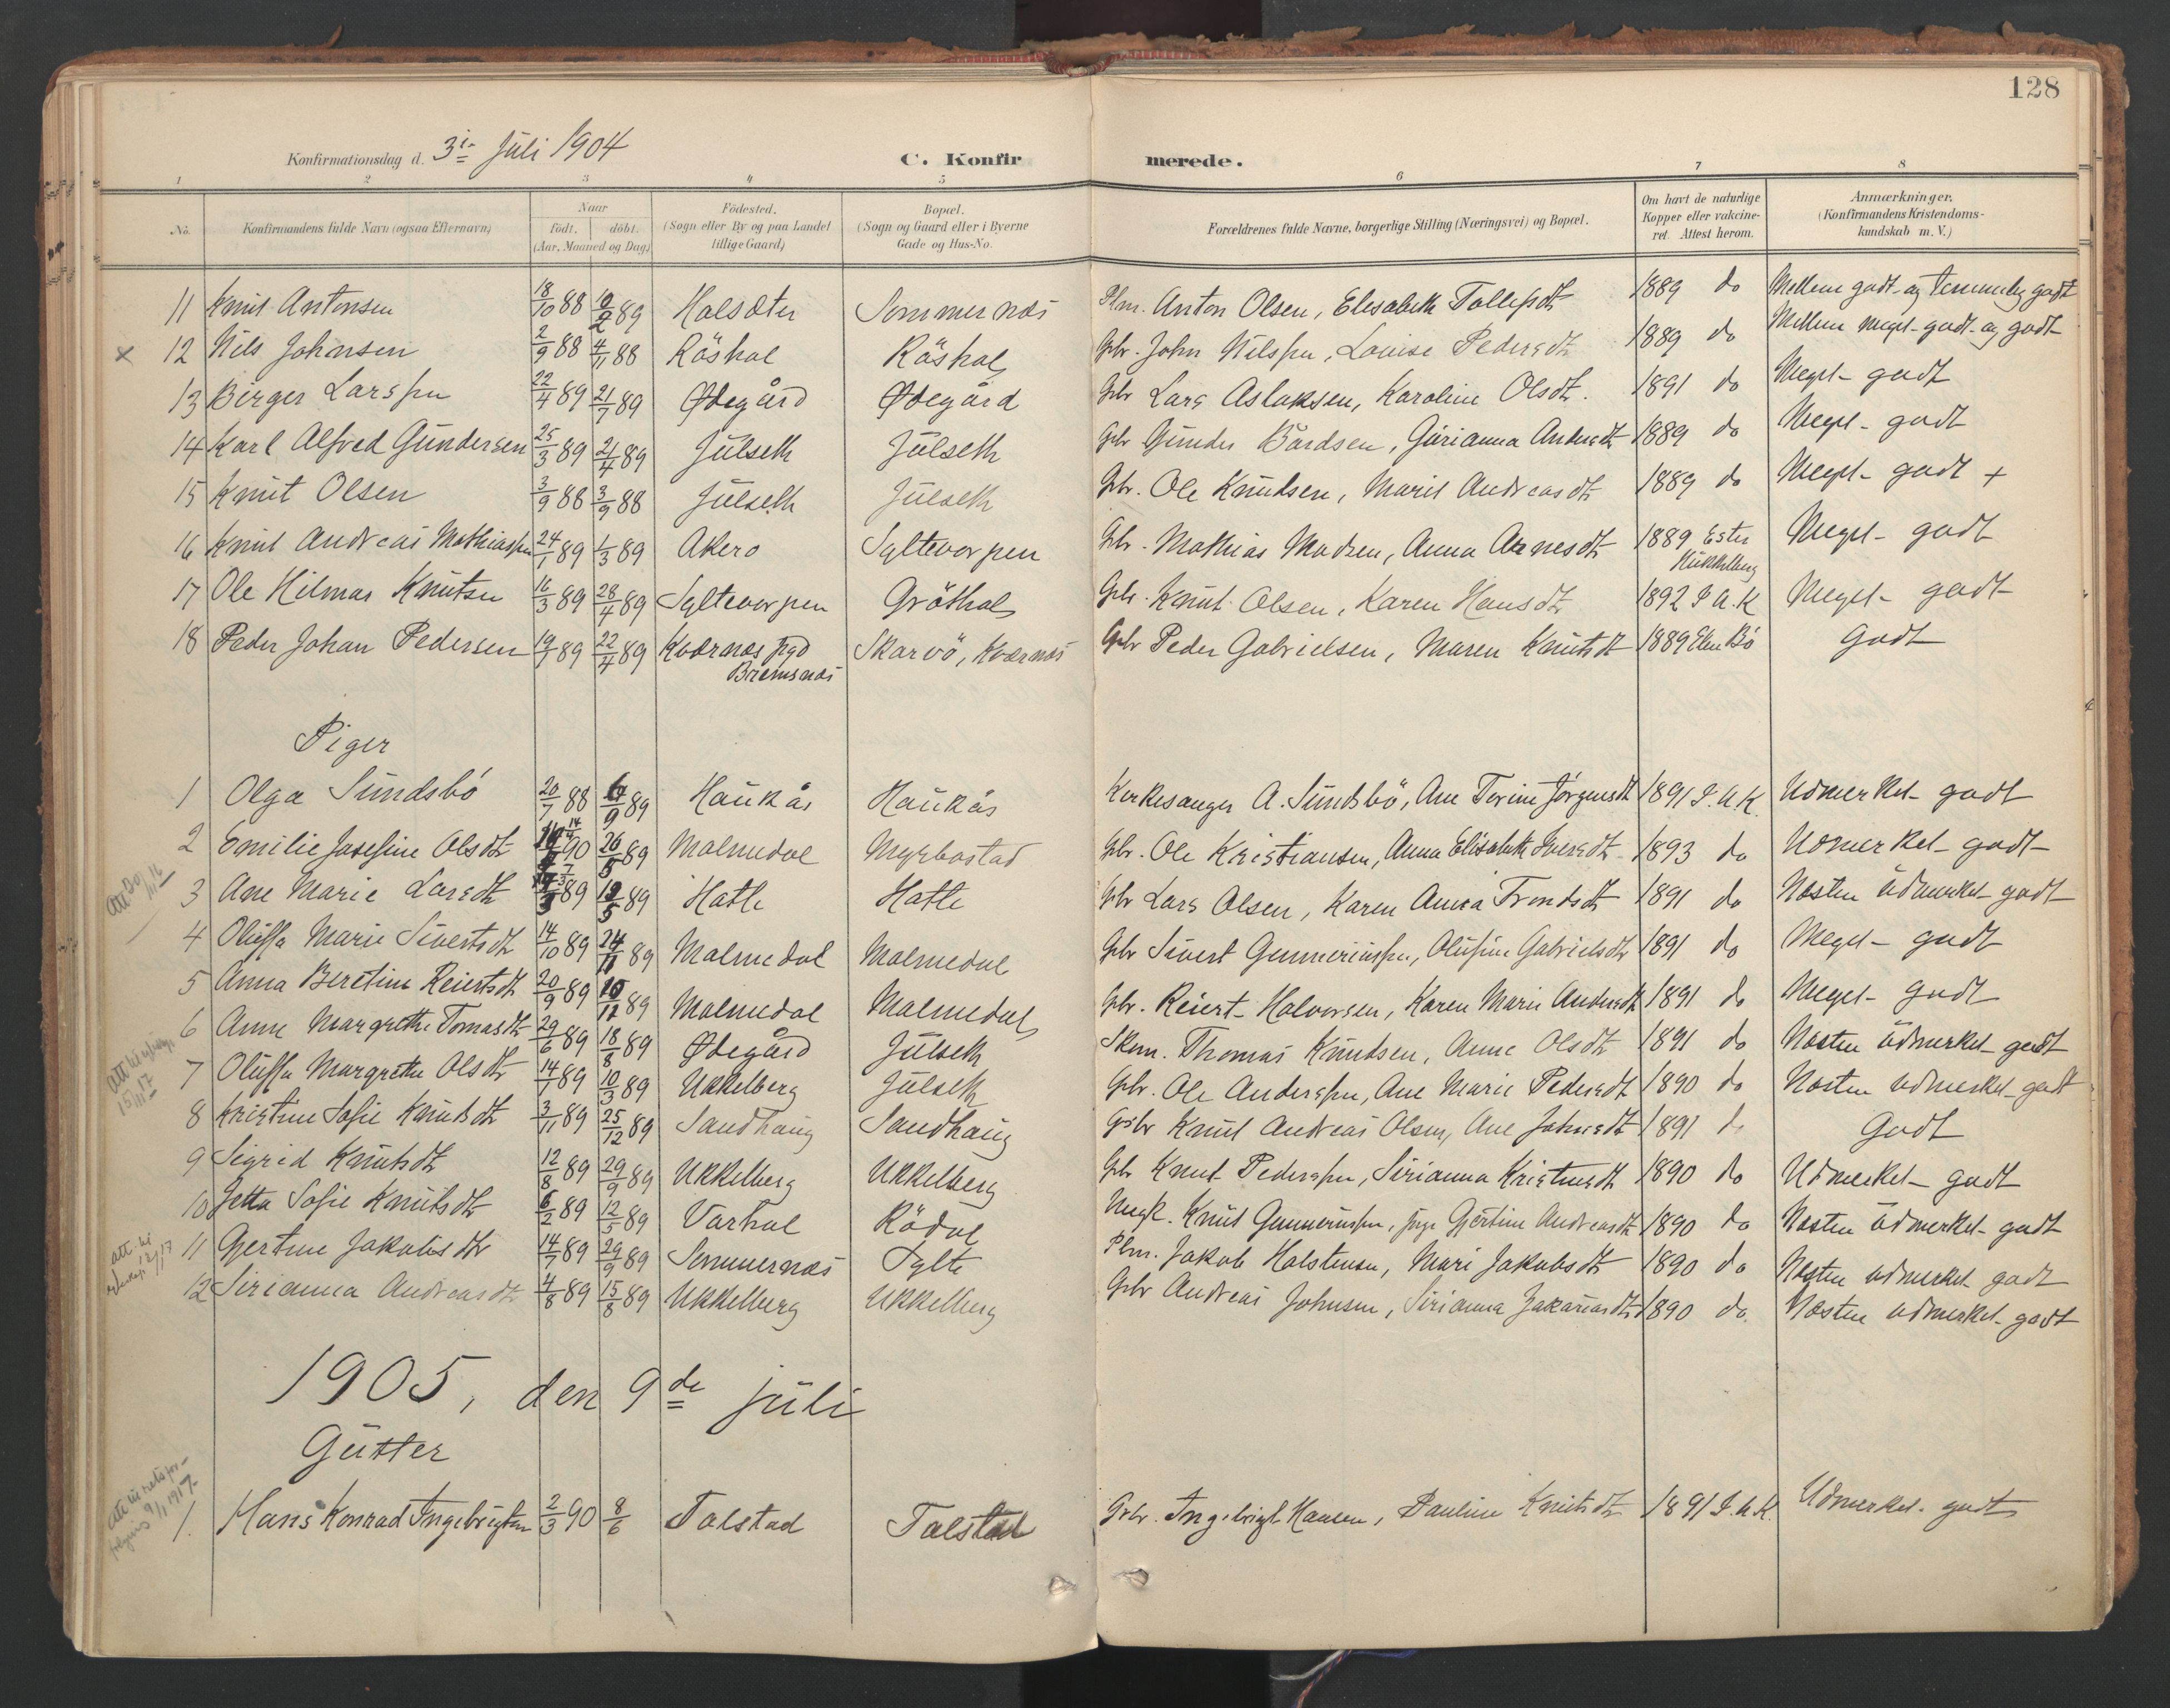 128
Konfirmationsdag d. 3i- Juli 1904 C. Konfir merede.
1 2 3 4 5 6 7 8
No. Konfirmandens fulde Navn (ogsaa Efternavn) Naar födt. döbt. (Aar, Maaned og Dag) Födested. (Sogn eller By og paa Landet tillige Gaard) Bopæl. (Sogn og Gaard eller i Byerne Gade og Hus-No. Forældrenes fulde Navne, borgerlige Stilling (Næringsvei) og Bopæl. Om havt de naturlige Kopper eller vakcineret. Attest herom. Anmærkninger. (Konfirmandens Kristendomskundskab m. V.)
11 Knut Antonsen 18/10 88 10/2 89 Halsæter Sommernæs Plm. Anton Olsen, Elisabeth Tollefsdtr 1889 do Mellem godt og temmelig godt
× 12 Nils Johnsen 2/9 88 4/11 88 Röshol Röshol Gbr. John Nilssen, Louise Pedersdtr 1889 do Mellem meget godt og godt
13 Birger Larssen 22/4 89 21/7 89 Ødegård Ødegård Gbr Lars Aslaksen, Karoline Olsdtr. 1891 do Meget godt
14 Karl Alfred Gundersen 25/3 89 21/4 89 Julseth Julseth Gbr Gunder Bårdsen, Gurianna Andersdtr 1889 do Meget godt
15 Knut Olsen 3/9 88 3/9 88 Julseth Julseth Gbr. Ole Knudsen, Marit Andreasdtr 1889 do Meget godt +
16 Knut Andreas Mathiassen 24/1 89 1/3 89 Akerø Syltevorpen Gbr. Mathias Madsen, Anna Arnesdtr 1889 Ester Hukkelberg Meget godt
17 Ole Hilmar Knutsen 16/3 89 28/4 89 Syltevorpen Gröthol Gbr. Knut Olsen, Karen Hansdtr 1892 I.A.K Meget godt
18 Peder Johan Pedersen 19/1 89 22/4 89 Kværnæs pgd Bremsnæs Skarvö, Kværnæs Gbr Peder Gabrielsen, Maren Knutsdtr 1889 Elen Bö Godt
Piger
1 Olga Sundsbö 20/7 88 6/9 89 Haukås Haukås Kirkesanger A. Sundsbö, Ane Torine Jörgensdtr 1891 I.A.K. Udmerket godt
2 Emilie Josefine Olsdtr 90 26/5 89 Malmedal Myrbostad Gbr. Ole Kristiansen, Anna Elisabeth Iversdtr 1893 do Udmerket godt
Att 30/11 16
3 Ane Marie Larsdtr 89 12/5 89 Hatle Hatle Gbr Lars Olsen, Karen Anna Trondsdtr 1891 do Næsten udmerket godt
4 Oluffa Marie Sivertsdtr 14/10 89 24/11 89 Malmedal Malmedal Gbr Sivert Gunneriussen, Olufine Gabrielsdtr 1891 do Meget godt
5 Anna Beretine Reiertsdtr 20/9 89 10/11 89 Malmedal Malmedal Gbr. Reiert Halvorsen, Karen Marie Andersdtr 1891 do Meget godt
6 Anne Margrethe Tomasdtr 29/6 89 18/8 89 Ødegård Julseth Skom. Thomas Knudsen, Anne Olsdtr 1891 do Næsten udmerket godt
7 Oluffa Margrethe Olsdtr 14/1 89 10/3 89 Ukkelberg Julseth Gbr. Ole Anderssen, Ane Marie Pedersdtr 1890 do Næsten udmerket godt
8 Kristine Sofie Knutsdtr 3/11 89 25/12 89 Sandhaug Sandhaug Gbr Knut Andreas Olsen, Ane Johnsdtr 1891 do Godt
9 Sigrid Knutsdtr 12/8 89 29/9 89 Ukkelberg Ukkelberg Gbr Knut Pederssen, Sirianna Kristensdtr 1890 do Udmerket godt
10 Jetta Sofie Knutsdtr 6/2 89 12/5 89 Varhol Rödal Ungk. Knut Gunneriussen, pige Gjertine Andreasdtr 1890 do Næsten udmerket godt
11 Gjertine Jakobsdtr 14/7 89 29/9 89 Sommernæs Sylte Plm. Jakob Halstensen, Mari Jakobsdtr 1890 do Næsten udmerket godt
12 Sirianna Andreasdtr 4/8 89 15/8 89 Ukkelberg Ukkelberg Gbr Andreas Johnsen, Sirianna Zakariasdtr 1890 do. Næsten udmerket godt
1905, den 9de juli
Gutter
1. Hans Konrad Ingebrigtsen 2/3 90 8/6 Talstad Talstad Gbr. Ingebrigt Hansen, Pauline Knutsdtr 1891 I.A.K. Udmerket godt